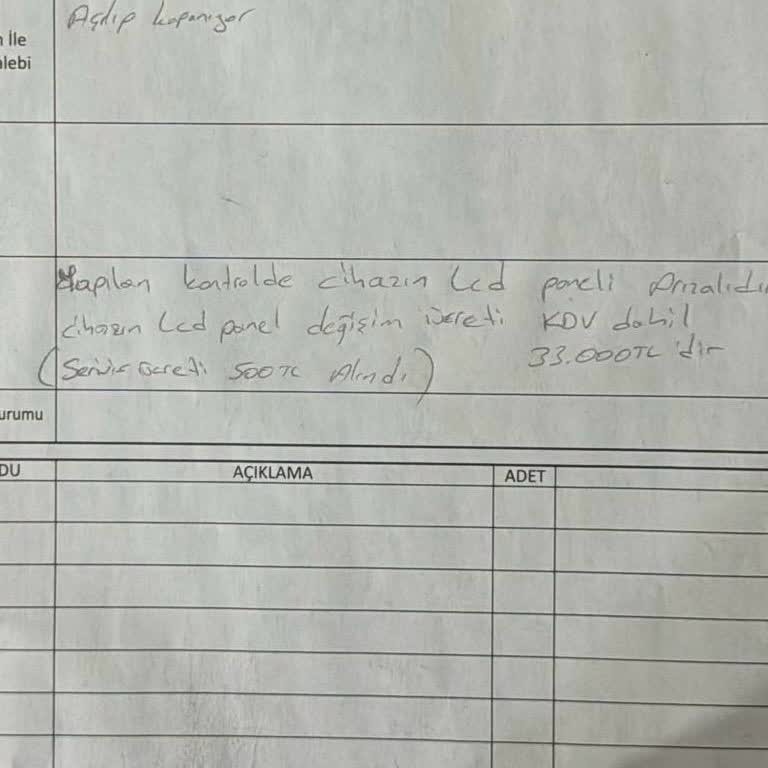 Açılıp kapanıyor
n İle
alebi
Yapılan kontrolde cihazın Lcd paneli Arızalıdır
Cihazın Lcd panel değişim ücreti KDV dahil
33.000TL'dir
(Servis ücreti 500TL Alındı)
urumu
DU AÇIKLAMA ADET